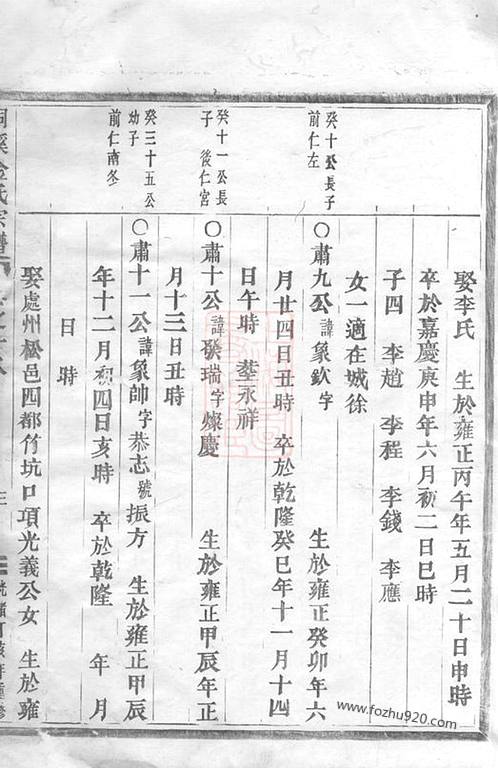 娶李氏 生於雍正丙午年五月二十日申時
卒於嘉慶庚申年六月初二日巳時
子四 李趙 李程 李錢 李應
女一適在城徐
癸十公長子
前仁左
○肅九公諱象欽字 生於雍正癸卯年六
月廿四日丑時 卒於乾隆癸巳年十一月十四
日午時 塟永祥
癸十一公長
子 後仁宮
○肅十公諱瑞字燦慶 生於雍正甲辰年正
月十三日丑時
癸三十五公
幼子
前仁南冬
○肅十一公諱象帥字恭志號振方 生於雍正甲辰
年十二月初四日亥時 卒於乾隆 年 月
日 時
娶處州松邑四都竹坑口項光義公女 生於雍
桐溪金氏宗譜
三
www.fozhu920.com